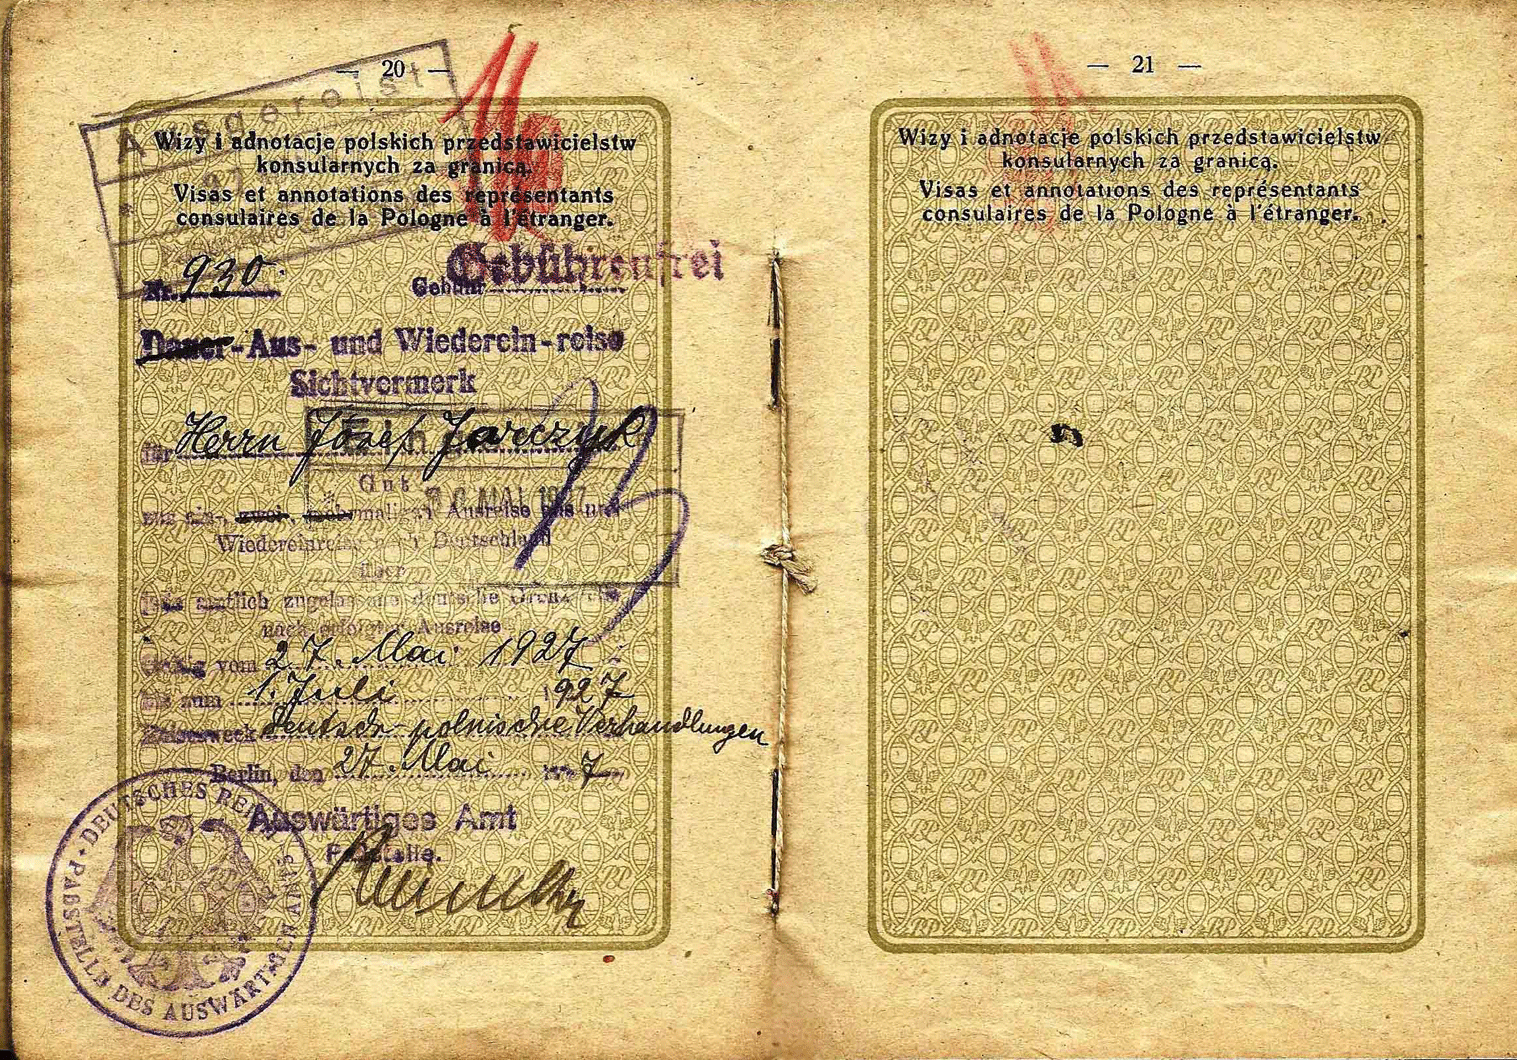 — 20 —
Ausgereist
Wizy i adnotacje polskich przedstawicielstw
konsularnych za granicą.
Visas et annotations des représentants
consulaires de la Pologne à l'étranger.
Nr. 930. Gebühr Gebührenfrei
Dauer-Aus- und Wiederein-reise
Sichtvermerk
für Herrn Józef Jarczyk
MAI 1927
zwei, maligen Ausreise aus und
Wiedereinreise nach Deutschland
über
amtlich zugelassene deutsche
nach erfolgter Ausreise
Gültig vom 27. Mai 1927
bis zum 1. Juli 1927
Reisezweck Deutsch-polnische Verhandlungen
Berlin, den 27. Mai 1927
Auswärtiges Amt
Paßstelle.
DEUTSCHES REICH
PAßSTELLE DES AUSWÄRTIGEN AMTS
— 21 —
Wizy i adnotacje polskich przedstawicielstw
konsularnych za granicą.
Visas et annotations des représentants
consulaires de la Pologne à l'étranger.